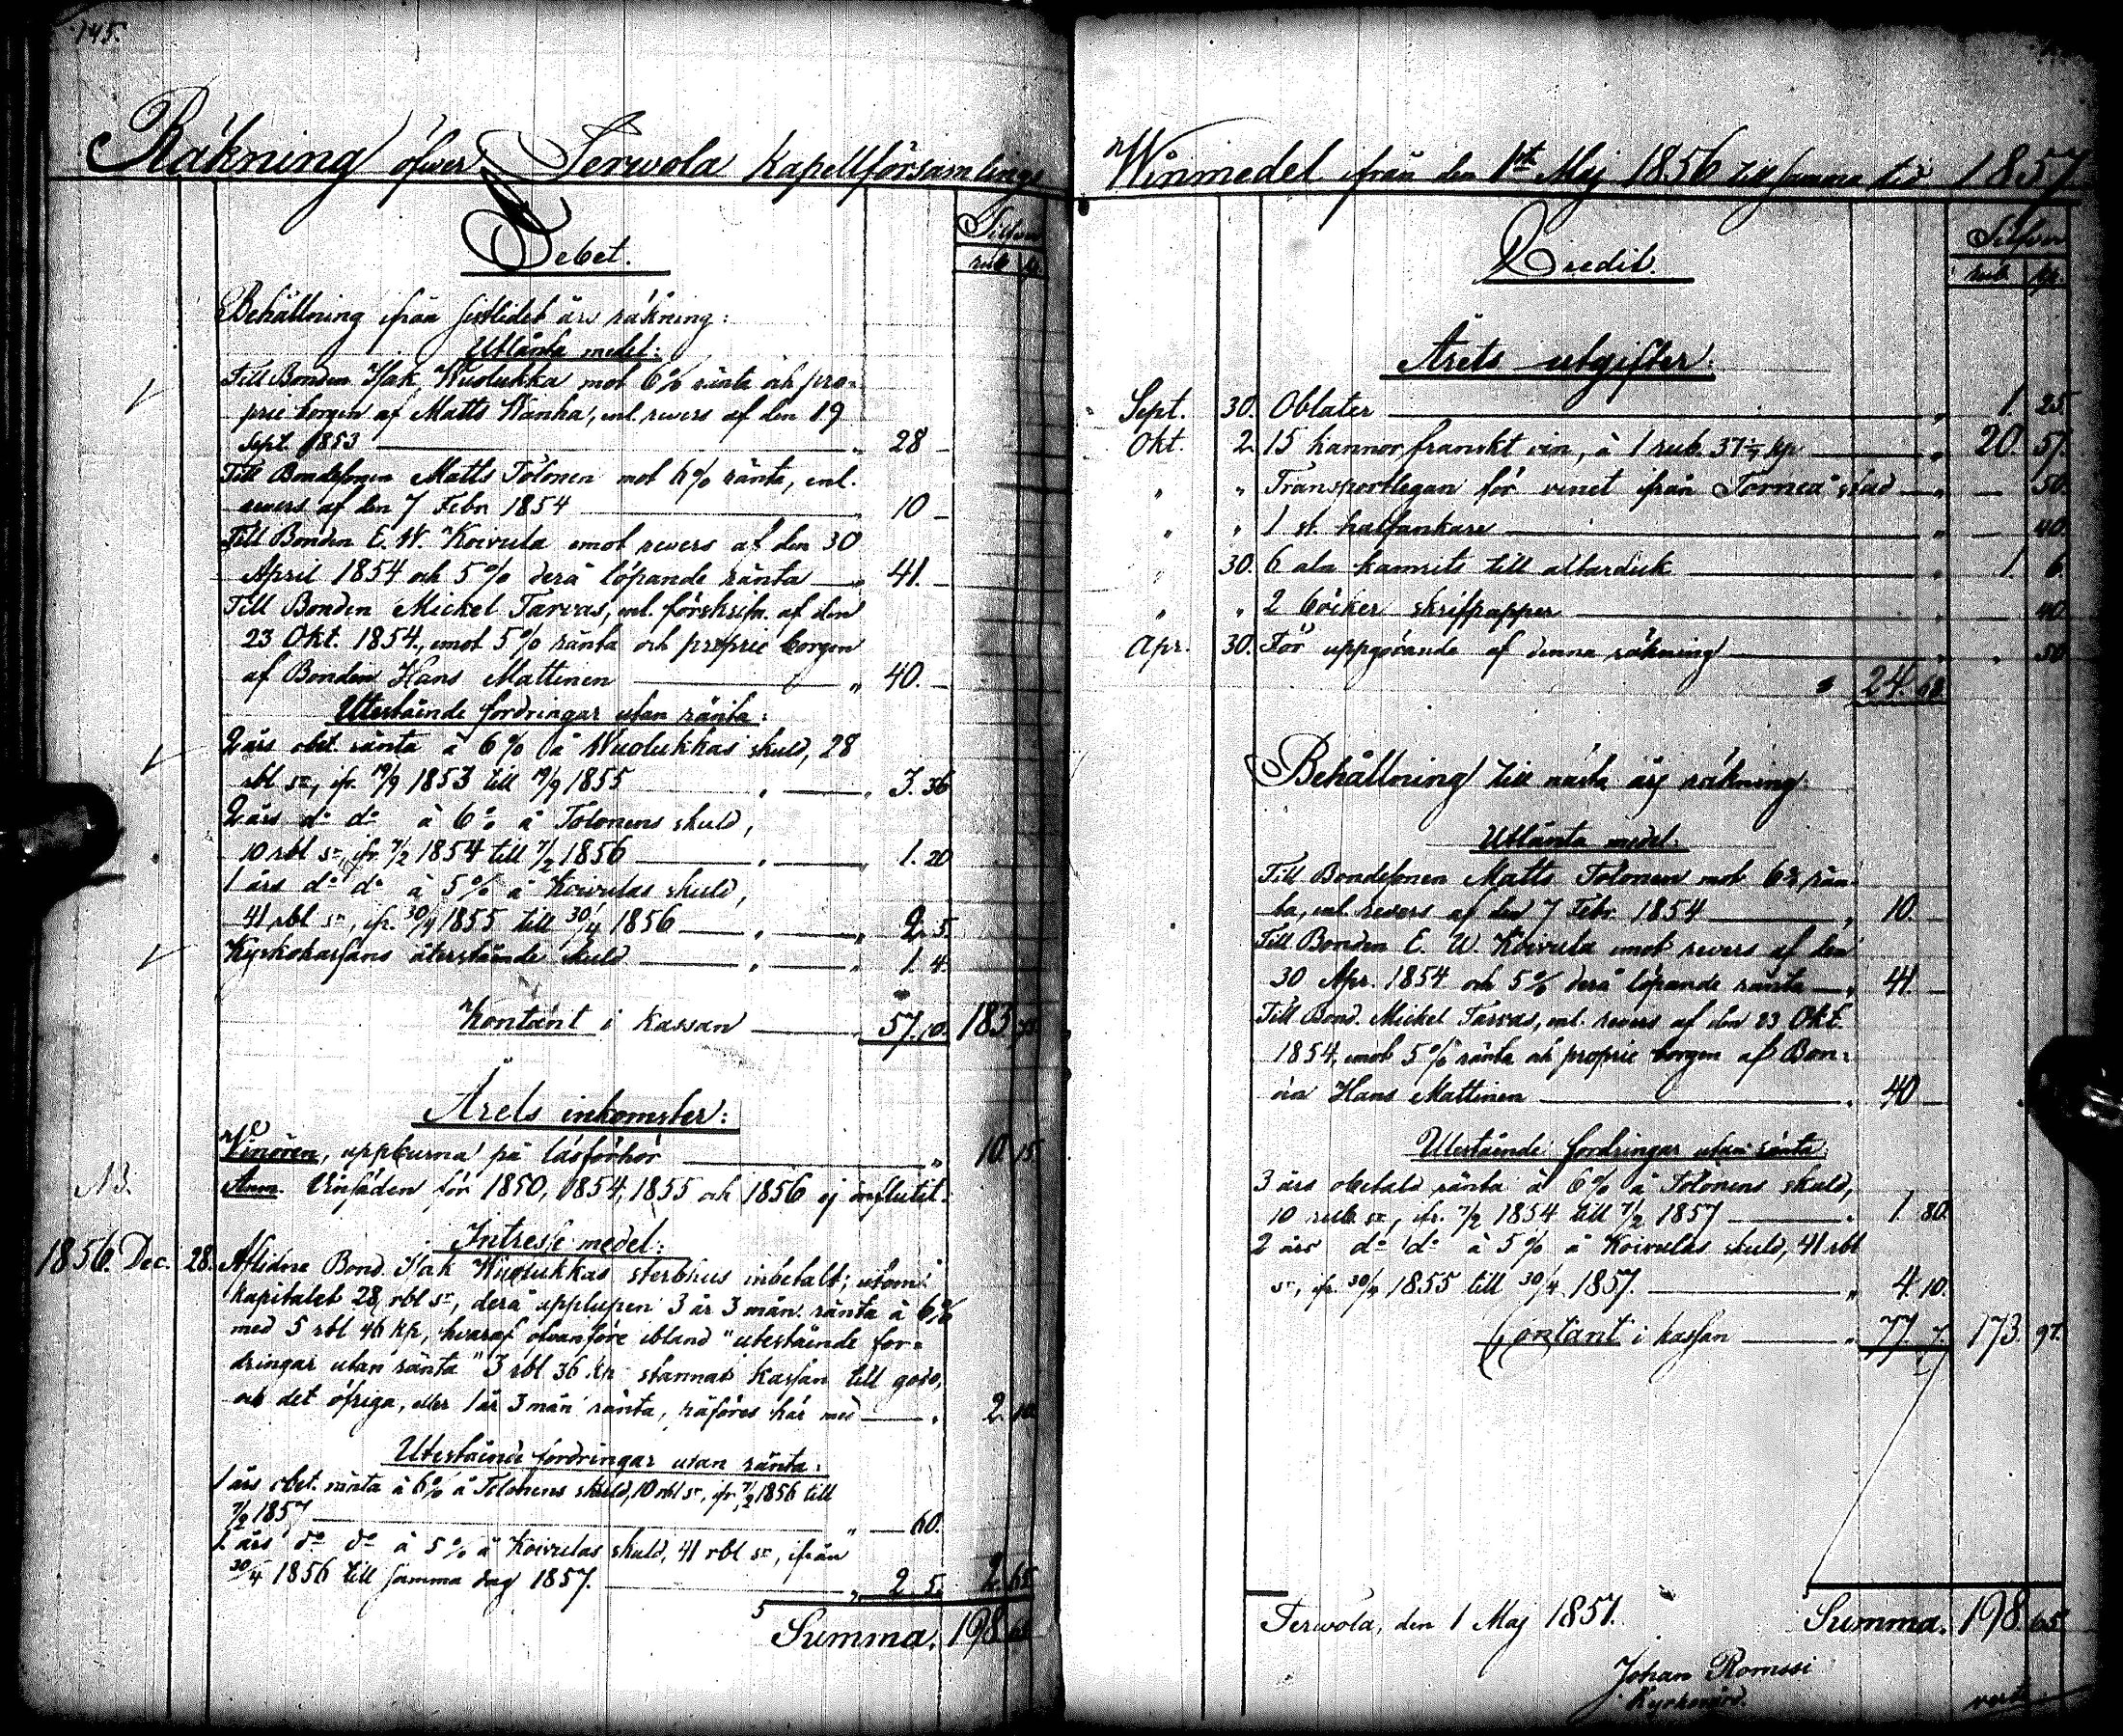 145.
Räkning öfwer Terwola Kapellförsamlings
Debet.
Silfver
rub. kp.
Behållning ifrån sistlidet års räkning:
Utlånta medel:
Till Bonden Isak Wuolukka mot 6% ränta och pro-
prie borgen af Matts Wanha, enl. revers af den 19
Sept. 1853 " 28 –
Till Bondesonen Matts Tolonen mot 6% ränta, enl.
revers af den 7 Febr. 1854 " 10 –
Till Bonden E. W. Koivula emot revers af den 30
April 1854 och 5% derå löpande ränta " 41. –
Till Bonden Mickel Tarvas, enl. förskrifn. af den
23 Okt. 1854., emot 5% ränta och proprie borgen
af Bonden Hans Mattinen " 40. –
Utestående fordringar utan ränta:
2 års obet. ränta à 6% å Wuolukkas skuld, 28
rbl sr, ifr. 19/9 1853 till 19/9 1855 " 3. 36
2 års do do à 6% å Tolonens skuld,
10 rbl sr, ifr. 7/2 1854 till 7/2 1856 " 1. 20
1 års do do à 5% å Koivulas skuld,
41 rbl sr, ifr. 30/4 1855 till 30/4 1856 " 2. 5.
Kyrkokassans återstående skuld " 1. 4.
Kontant i kassan " 57. 10. 183. 75
Årets inkomster:
Vinören, uppburna på läsförhör " 10. 15.
NB. Anm. Vinsäden för 1850, 1854, 1855 och 1856 ej influtit.
Intresse medel:
1856. Dec. 28. Aflidne Bond. Isak Wuolukkas sterbhus inbetalt, utom
kapitalet 28 rbl sr, derå upplupen 3 år 3 mån. ränta à 6%
med 5 rbl 46 kp, hvaraf ofvanföre ibland "utestående for-
dringar utan ränta" 3 rbl 36 kp stannat kassan till godo,
och det öfriga, eller 1 år 3 mån ränta, påföres här med " 2. 10.
Utestående fordringar utan ränta:
1 års obet. ränta à 6% å Tolonens skuld, 10 rbl sr, ifr. 7/2 1856 till
7/2 1857 " – 60.
1 års do do à 5% å Koivulas skuld, 41 rbl sr, ifrån
30/4 1856 till samma dag 1857. " 2. 5. 2. 65
Summa. 198. 65
Winmedel ifrån den 1st Maj 1856 till samma tid 1857.
Credit.
Silfver
rub. kp.
Årets utgifter:
Sept. 30. Oblater " 1. 25.
Okt. 2. 15 kannor franskt vin, à 1 rub. 37 1/7 kp " 20. 57.
" " Transportlegan för vinet ifrån Torneå stad " – 50.
" " 1 st. halfankare " – 40.
" 30. 6 aln kamrits till altarduk " 1. 6.
" " 2 böcker skrifpapper " 40.
Apr. 30. För uppgörande af denna räkning " " 50
24. 68
Behållning till nästa års räkning:
Utlånta medel:
Till Bondesonen Matts Tolonen mot 6% rän-
ta, enl. revers af den 7 Febr. 1854 " 10. –
Till Bonden E. W. Koivula emot revers af den
30 Apr. 1854 och 5% derå löpande ränta " 41. –
Till Bond. Mickel Tarvas, enl. revers af den 23 Okt.
1854, emot 5% ränta och proprie borgen af Bon-
den Hans Mattinen " 40 –
Utestående fordringar utan ränta:
3 års obetald ränta à 6% å Tolonens skuld,
10 rub. sr, ifr. 7/2 1854 till 7/2 1857 " 1. 80.
2 års do do à 5% å Koivulas skuld, 41 rbl
sr, ifr. 30/4 1855 till 30/4 1857. " 4. 10.
Contant i kassan " 77. 7. 173. 97.
Terwola, den 1 Maj 1857. Summa. 198. 65
Johan Romssi
Kyrkovärd.
verte